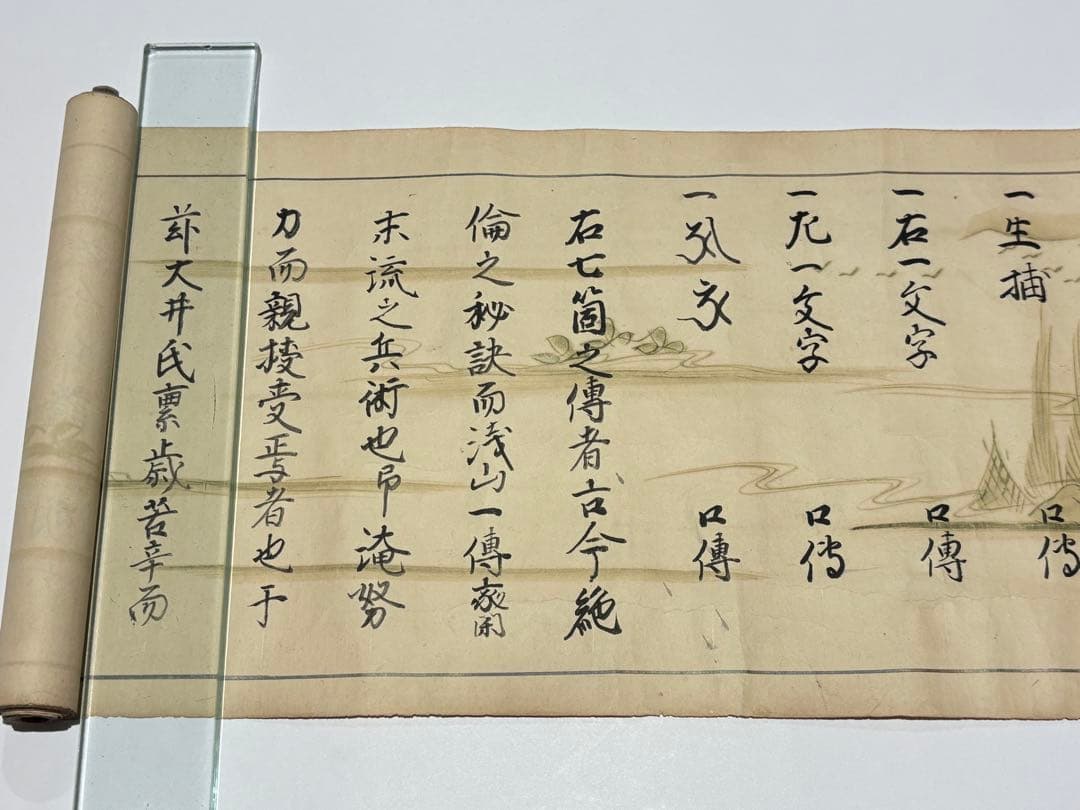 一生捕 口傳
一右一文字 口傳
一 一文字 口傳
一 口傳
右七箇之傳者古今絶
倫之秘訣而浅山一傳
末流之兵術也 淹努
力而親授受焉者也于
茲大井氏累歳苦辛而